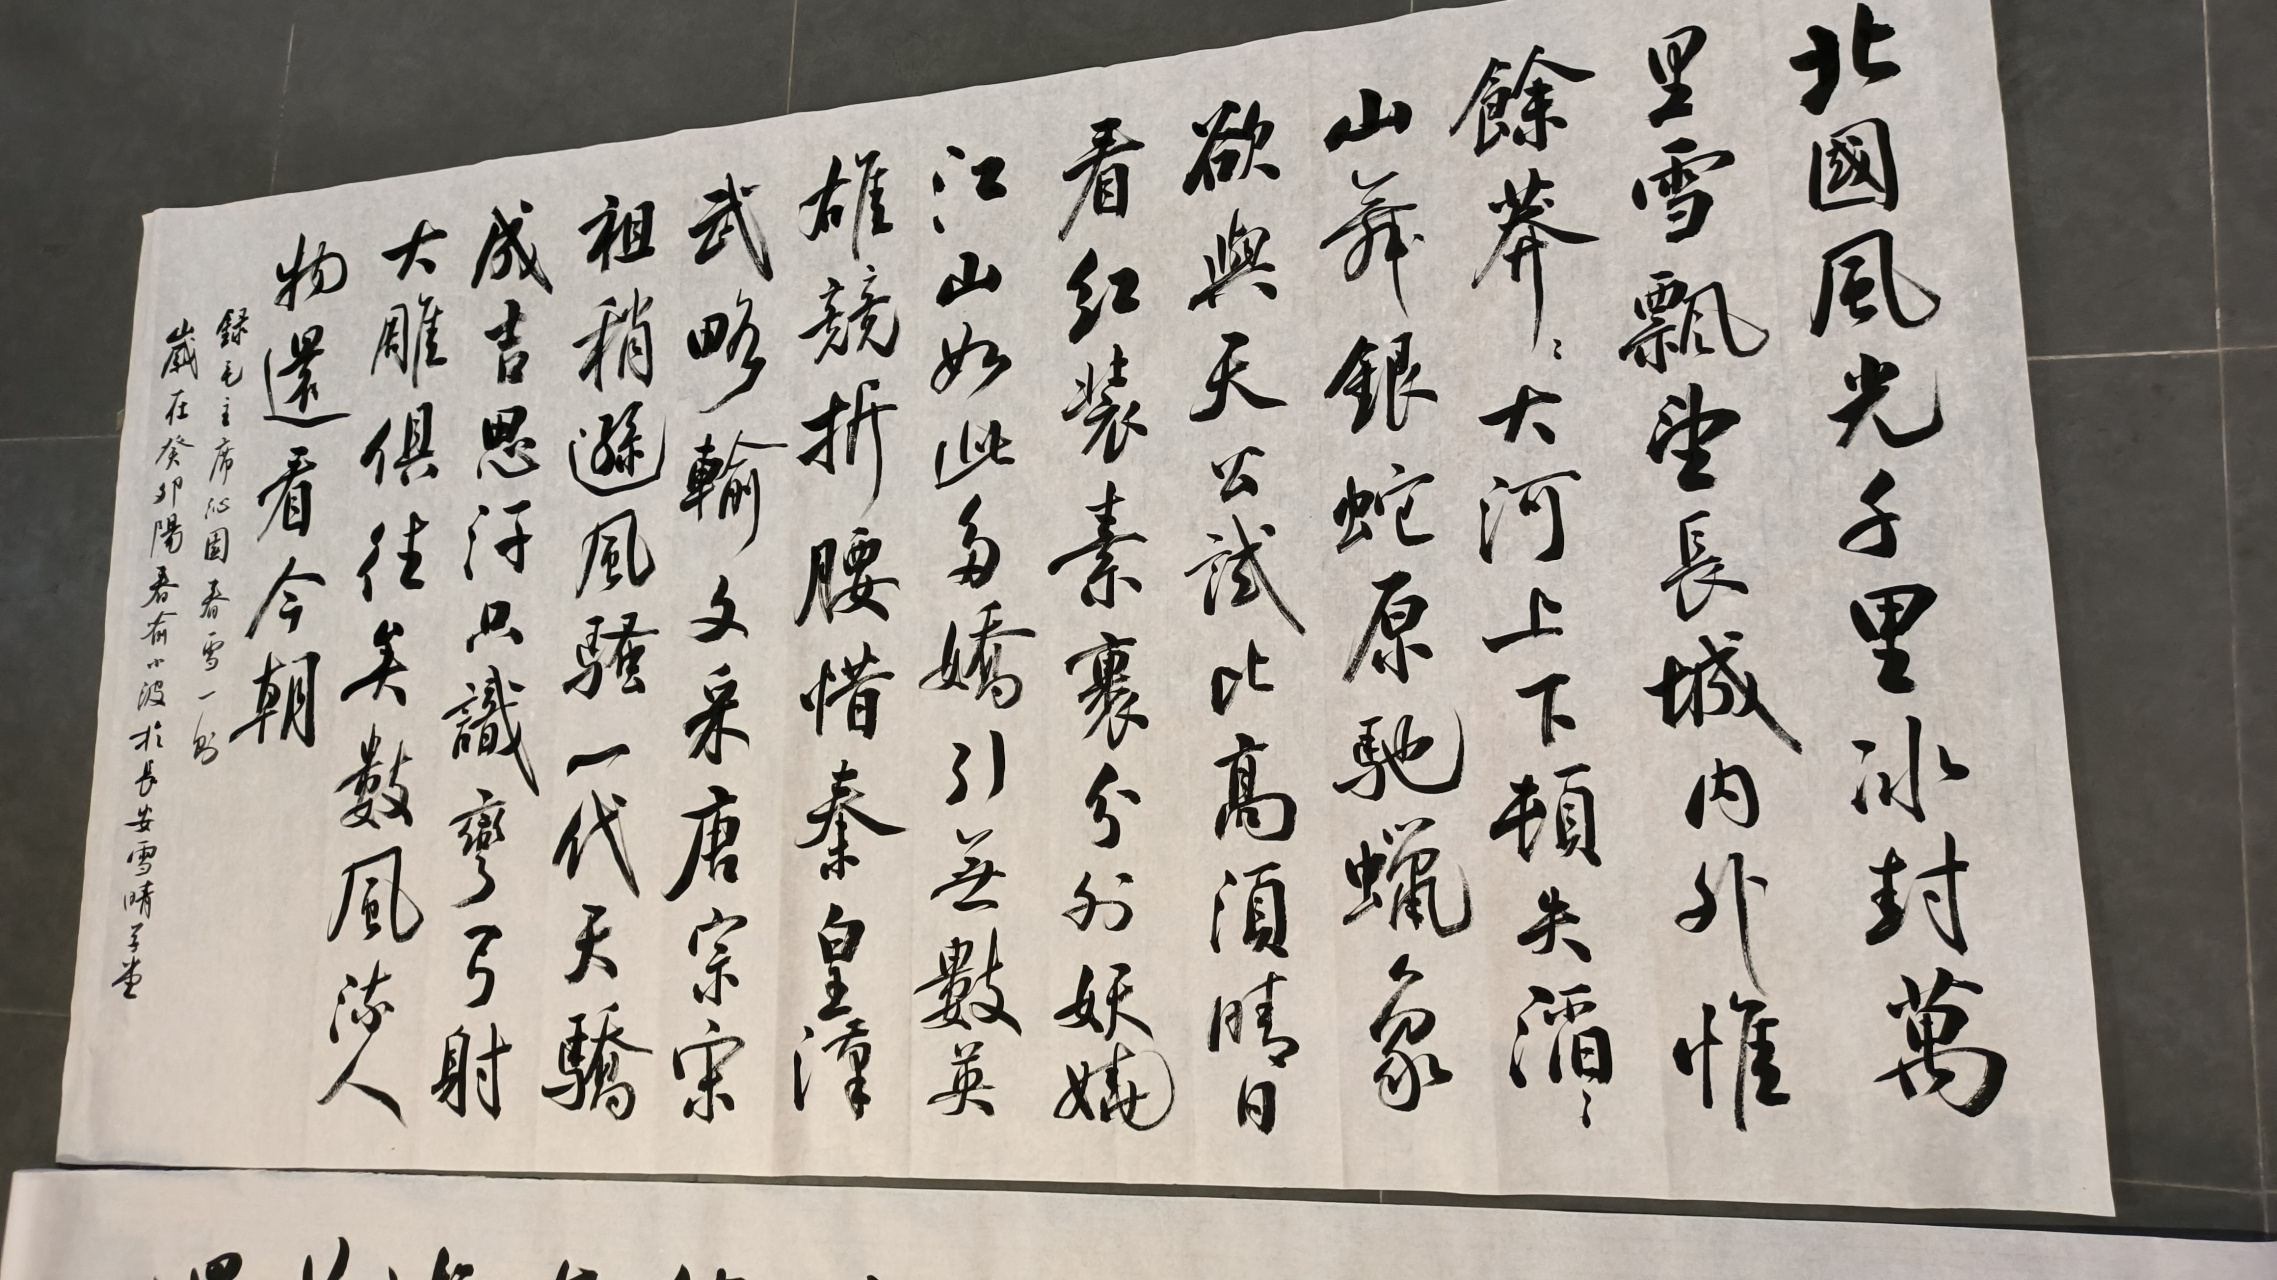 北國風光千里冰封萬
里雪飄望長城內外惟
餘莽〻大河上下頓失滔〻
山舞銀蛇原馳蠟象
欲與天公試比高須晴日
看紅裝素裹分外妖嬈
江山如此多嬌引無數英
雄競折腰惜秦皇漢
武略輸文采唐宗宋
祖稍遜風騷一代天驕
成吉思汗只識彎弓射
大雕俱往矣數風流人
物還看今朝
錄毛主席沁園春雪一則
歲在癸卯陽春俞小波於長安雪晴草堂